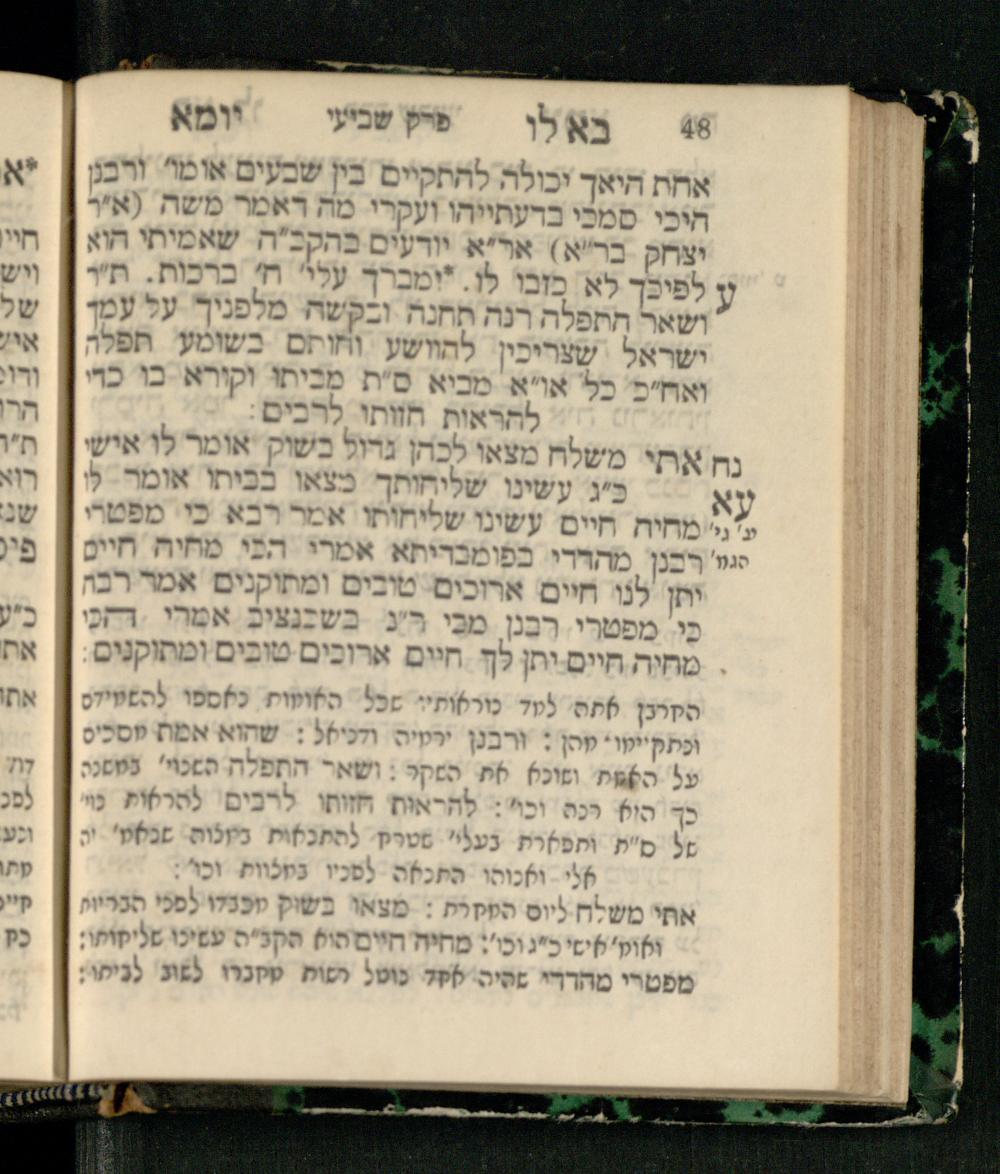 48 בא לו פרק שביעי יומא
אחת היאך יכולה להתקיים בין שבעים אומו' ורבנן
היכי סמכי בדעתייהו ועקרי מה דאמר משה (א״ר
יצחק בר״א) אר״א יודעים בהקב״ה שאמיתי הוא
ע לפיכך לא כזבו לו. *ומברך עלי' ח' ברכות. ת״ר
ושאר התפלה רנה תחנה ובקשה מלפניך על עמך
ישראל שצריכין להוושע וחותם בשומע תפלה
ואח״כ כל או״א מביא ס״ת מביתו וקורא בו כדי
להראות חזותו לרבים:
נח אתי משלח מצאו לכהן גדול בשוק אומר לו אישי
עא כ״ג עשינו שליחותך מצאו בביתו אומר לו
מחיה חיים עשינו שליחותו אמר רבא כי מפטרי
הגמ' רבנן מהדדי בפומבדיתא אמרי הכי מחיה חיים
יתן לנו חיים ארוכים טובים ומתוקנים אמר רבה
כי מפטרי רבנן מבי ר״נ בשכנציב אמרי הכי
מחיה חיים יתן לך חיים ארוכים טובים ומתוקנים:
הקרבן אתה למד נוראותיו שכל האומות נאספו להשמידם
ונתקיימו מהן: ורבנן ירמיה ודניאל: שהוא אמת מסכים
על האמת ושונא את השקר: ושאר התפלה השנוי' במשנה
כך היא רנה וכו': להראות חזותו לרבים להראות נוי'
של ס״ת ותפארת בעלי' שטרח להתנאות במצוה שנאמ' זה
אלי ואנוהו התנאה לפניו במצוות וכו':
אתי משלח ליום המחרת: מצאו בשוק מכבדו לפני הבריות
ואומ' אישי כ״ג וכו': מחיה חיים הוא הקב״ה עשינו שליחותו:
מפטרי מהדדי שהיה אחד נוטל רשות מחברו לשוב לביתו: